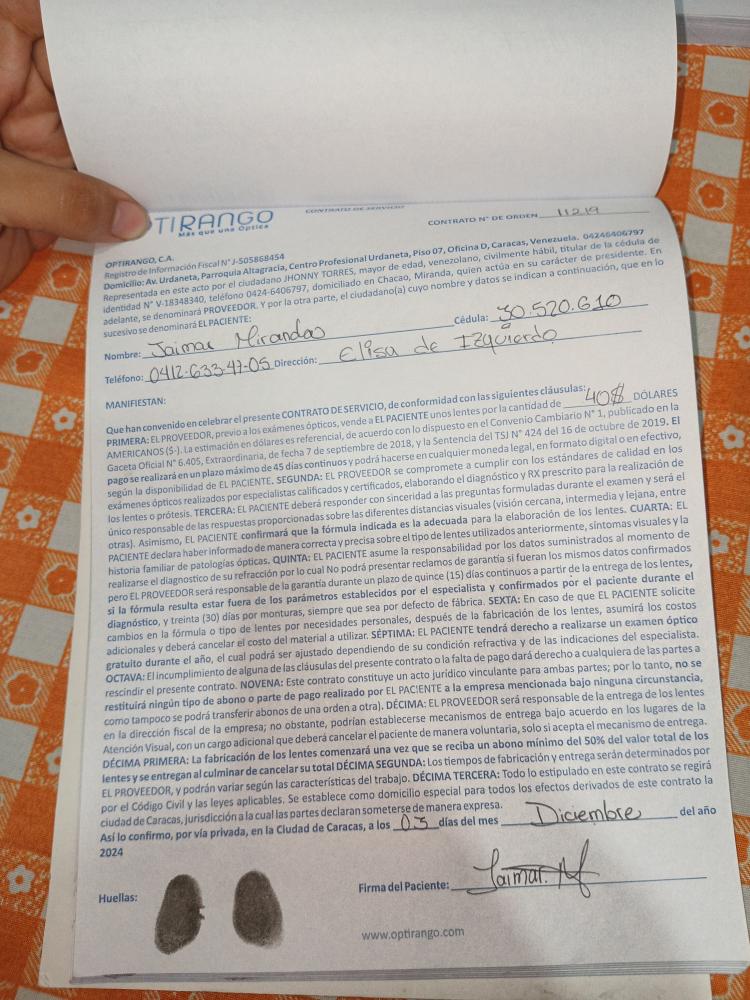 OPTIRANGO
Más que una Óptica
CONTRATO DE SERVICIO
CONTRATO N° DE ORDEN 11219
OPTIRANGO, C.A.
Registro de Información Fiscal N° J-505868454
Domicilio: Av. Urdaneta, Parroquia Altagracia, Centro Profesional Urdaneta, Piso 07, Oficina D, Caracas, Venezuela. 04246406797
Representada en este acto por el ciudadano JHONNY TORRES, mayor de edad, venezolano, civilmente hábil, titular de la cédula de
identidad N° V-18348340, teléfono 0424-6406797, domiciliado en Chacao, Miranda, quien actúa en su carácter de presidente. En
adelante, se denominará PROVEEDOR. Y por la otra parte, el ciudadano(a) cuyo nombre y datos se indican a continuación, que en lo
sucesivo se denominará EL PACIENTE:
Nombre: Jaimar Miranda Cédula: 30.520.610
Teléfono: 0412-633-47-05 Dirección: Elisa de Izquierdo
MANIFIESTAN:
Que han convenido en celebrar el presente CONTRATO DE SERVICIO, de conformidad con las siguientes cláusulas:
PRIMERA: EL PROVEEDOR, previo a los exámenes ópticos, vende a EL PACIENTE unos lentes por la cantidad de 40$ DÓLARES
AMERICANOS ($-). La estimación en dólares es referencial, de acuerdo con lo dispuesto en el Convenio Cambiario N° 1, publicado en la
Gaceta Oficial N° 6.405, Extraordinaria, de fecha 7 de septiembre de 2018, y la Sentencia del TSJ N° 424 del 16 de octubre de 2019. El
pago se realizará en un plazo máximo de 45 días continuos y podrá hacerse en cualquier moneda legal, en formato digital o en efectivo,
según la disponibilidad de EL PACIENTE. SEGUNDA: EL PROVEEDOR se compromete a cumplir con los estándares de calidad en los
exámenes ópticos realizados por especialistas calificados y certificados, elaborando el diagnóstico y RX prescrito para la realización de
los lentes o prótesis. TERCERA: EL PACIENTE deberá responder con sinceridad a las preguntas formuladas durante el examen y será el
único responsable de las respuestas proporcionadas sobre las diferentes distancias visuales (visión cercana, intermedia y lejana, entre
otras). Asimismo, EL PACIENTE confirmará que la fórmula indicada es la adecuada para la elaboración de los lentes. CUARTA: EL
PACIENTE declara haber informado de manera correcta y precisa sobre el tipo de lentes utilizados anteriormente, síntomas visuales y la
historia familiar de patologías ópticas. QUINTA: EL PACIENTE asume la responsabilidad por los datos suministrados al momento de
realizarse el diagnostico de su refracción por lo cual No podrá presentar reclamos de garantía si fueran los mismos datos confirmados
pero EL PROVEEDOR será responsable de la garantía durante un plazo de quince (15) días continuos a partir de la entrega de los lentes,
si la fórmula resulta estar fuera de los parámetros establecidos por el especialista y confirmados por el paciente durante el
diagnóstico, y treinta (30) días por monturas, siempre que sea por defecto de fábrica. SEXTA: En caso de que EL PACIENTE solicite
cambios en la fórmula o tipo de lentes por necesidades personales, después de la fabricación de los lentes, asumirá los costos
adicionales y deberá cancelar el costo del material a utilizar. SÉPTIMA: EL PACIENTE tendrá derecho a realizarse un examen óptico
gratuito durante el año, el cual podrá ser ajustado dependiendo de su condición refractiva y de las indicaciones del especialista.
OCTAVA: El incumplimiento de alguna de las cláusulas del presente contrato o la falta de pago dará derecho a cualquiera de las partes a
rescindir el presente contrato. NOVENA: Este contrato constituye un acto jurídico vinculante para ambas partes; por lo tanto, no se
restituirá ningún tipo de abono o parte de pago realizado por EL PACIENTE a la empresa mencionada bajo ninguna circunstancia,
como tampoco se podrá transferir abonos de una orden a otra). DÉCIMA: EL PROVEEDOR será responsable de la entrega de los lentes
en la dirección fiscal de la empresa; no obstante, podrían establecerse mecanismos de entrega bajo acuerdo en los lugares de la
Atención Visual, con un cargo adicional que deberá cancelar el paciente de manera voluntaria, solo si acepta el mecanismo de entrega.
DÉCIMA PRIMERA: La fabricación de los lentes comenzará una vez que se reciba un abono mínimo del 50% del valor total de los
lentes y se entregan al culminar de cancelar su total DÉCIMA SEGUNDA: Los tiempos de fabricación y entrega serán determinados por
EL PROVEEDOR, y podrán variar según las características del trabajo. DÉCIMA TERCERA: Todo lo estipulado en este contrato se regirá
por el Código Civil y las leyes aplicables. Se establece como domicilio especial para todos los efectos derivados de este contrato la
ciudad de Caracas, jurisdicción a la cual las partes declaran someterse de manera expresa.
Así lo confirmo, por vía privada, en la Ciudad de Caracas, a los 03 días del mes Diciembre del año
2024
Huellas:
Firma del Paciente: Jaimar. M
www.optirango.com